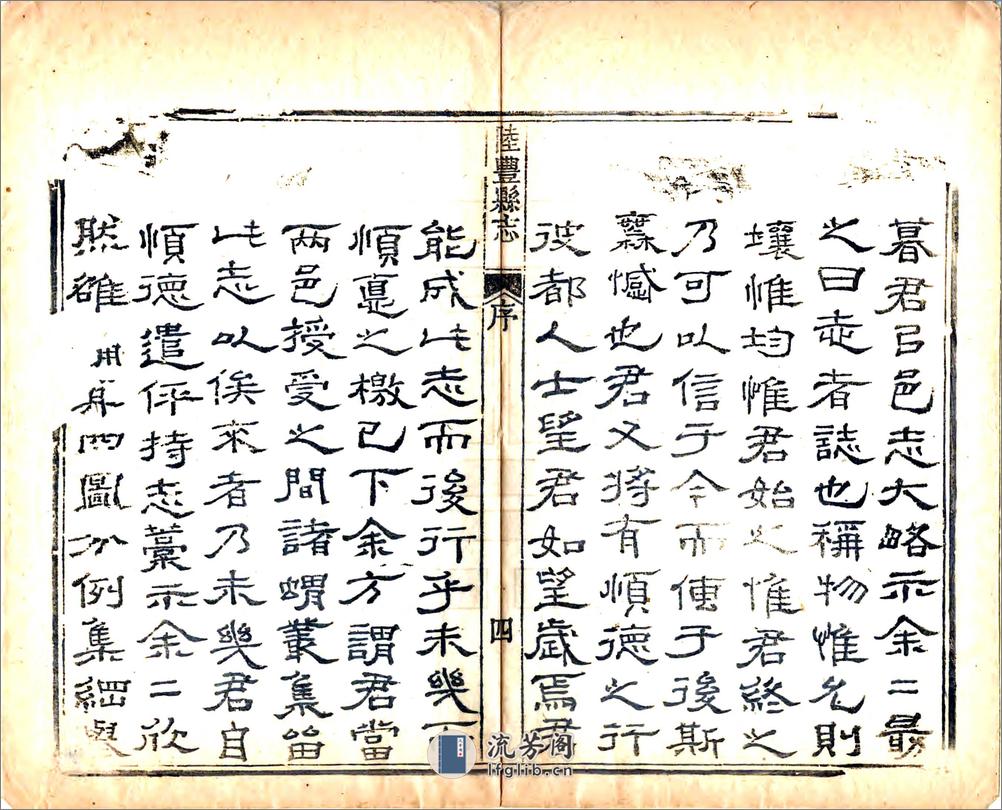 暮君㠯邑志大略示余二㝡
之曰志者誌也稱物惟允則
壤惟均惟君始之惟君終之
乃可以信于今而傳于後斯
憾也君又將有順德之行
彼都人士望君如望歲焉君
陸豐縣志
序
四
能成此志而後行乎未幾而
順悳之檄已下余方謂君當
兩邑授受之間諸蝟叢集留
此志以俟來者乃未幾君自
順德遣伻持志藁示余二欣
然雒用 四圖分例集綱與
流芳阁
lfglib.cn